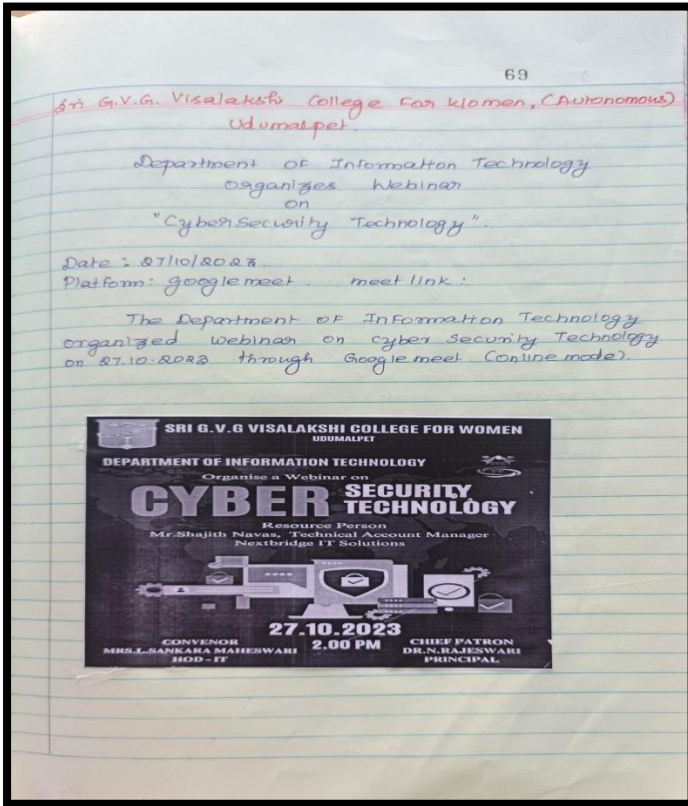 69
Sri G.V.G. Visalakshi College For Women, (Autonomous)
Udumalpet.
Department of Information Technology
organizes Webinar
on
"Cyber Security Technology".
Date : 27/10/2023
Platform: google meet. meet link :
The Department of Information Technology
organized webinar on cyber Security Technology
on 27.10.2023 through Google meet (online mode).
SRI G.V.G VISALAKSHI COLLEGE FOR WOMEN
UDUMALPET
DEPARTMENT OF INFORMATION TECHNOLOGY
Organise a Webinar on
CYBER SECURITY TECHNOLOGY
Resource Person
Mr.Shajith Navas, Technical Account Manager
Nextbridge IT Solutions
27.10.2023
2.00 PM
CONVENOR
MRS.L.SANKARA MAHESWARI
HOD - IT
CHIEF PATRON
DR.N.RAJESWARI
PRINCIPAL